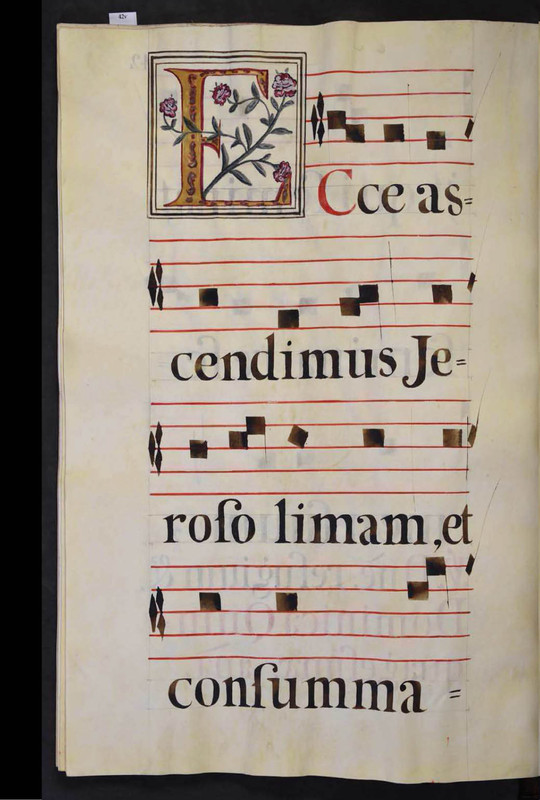 42v
ECce as=
cendimus Je=
roſo limam, et
conſumma =